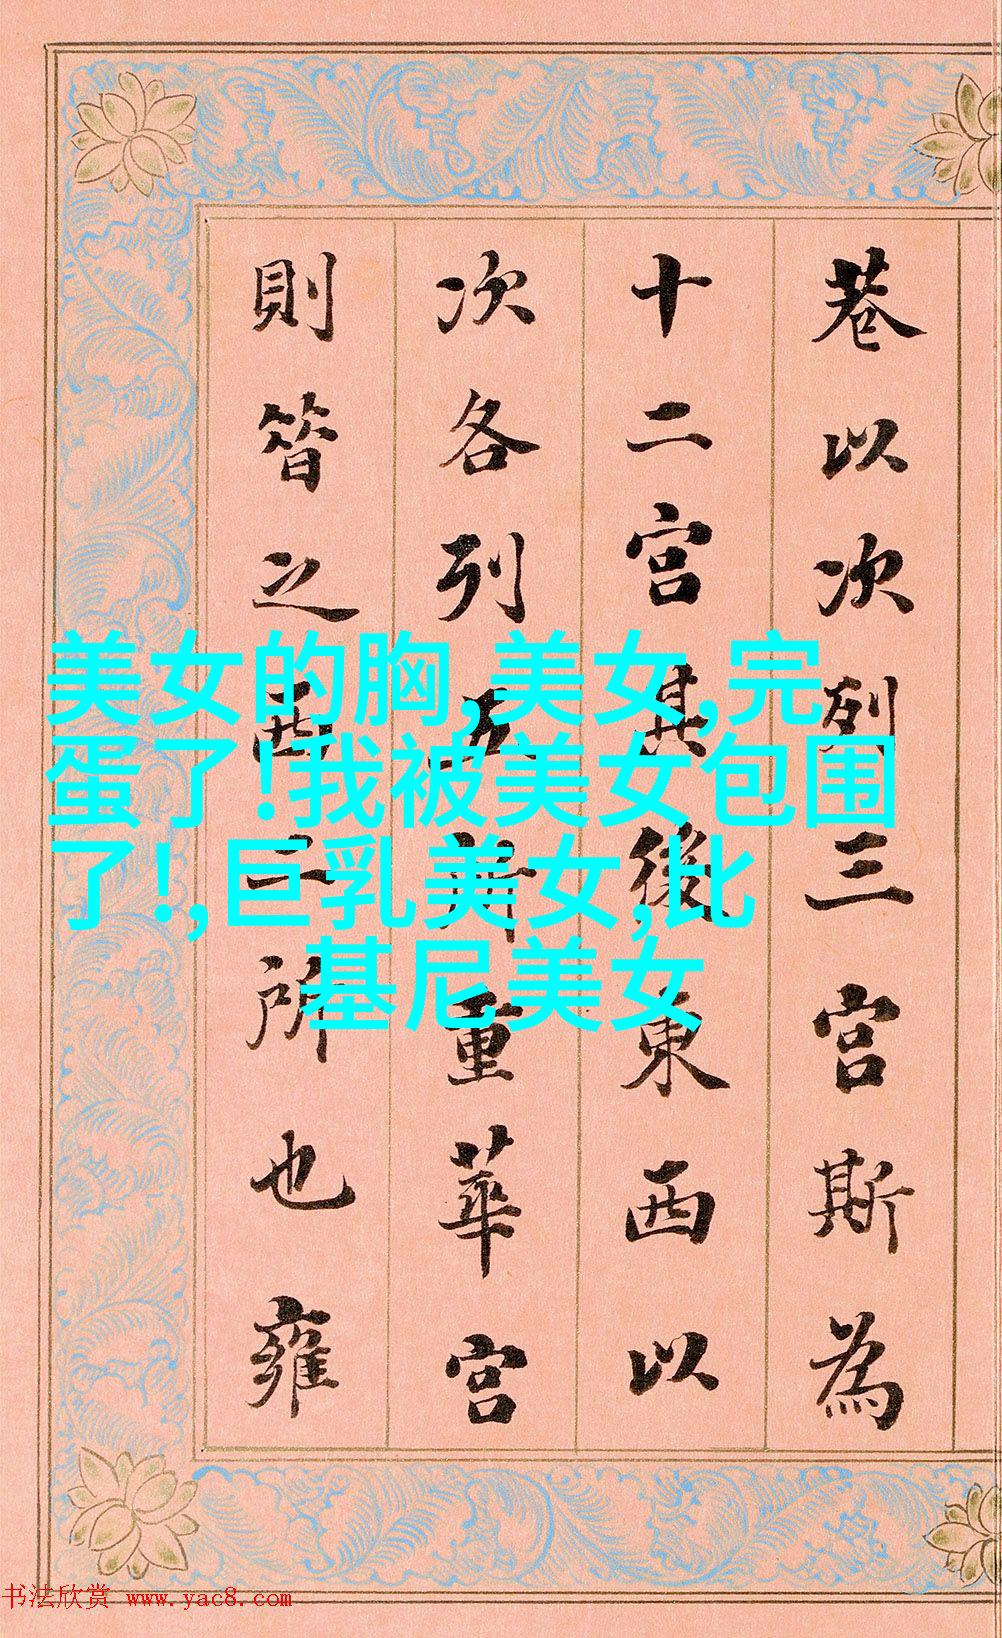 巷以次列三宫斯為
十二宫其後東西以
次各列五所重華宫
則昔之西二所也雍
美女的胸,美女,完
蛋了!我被美女包围
了!,巨乳美女,比
基尼美女
书法欣赏 www.yac8.com